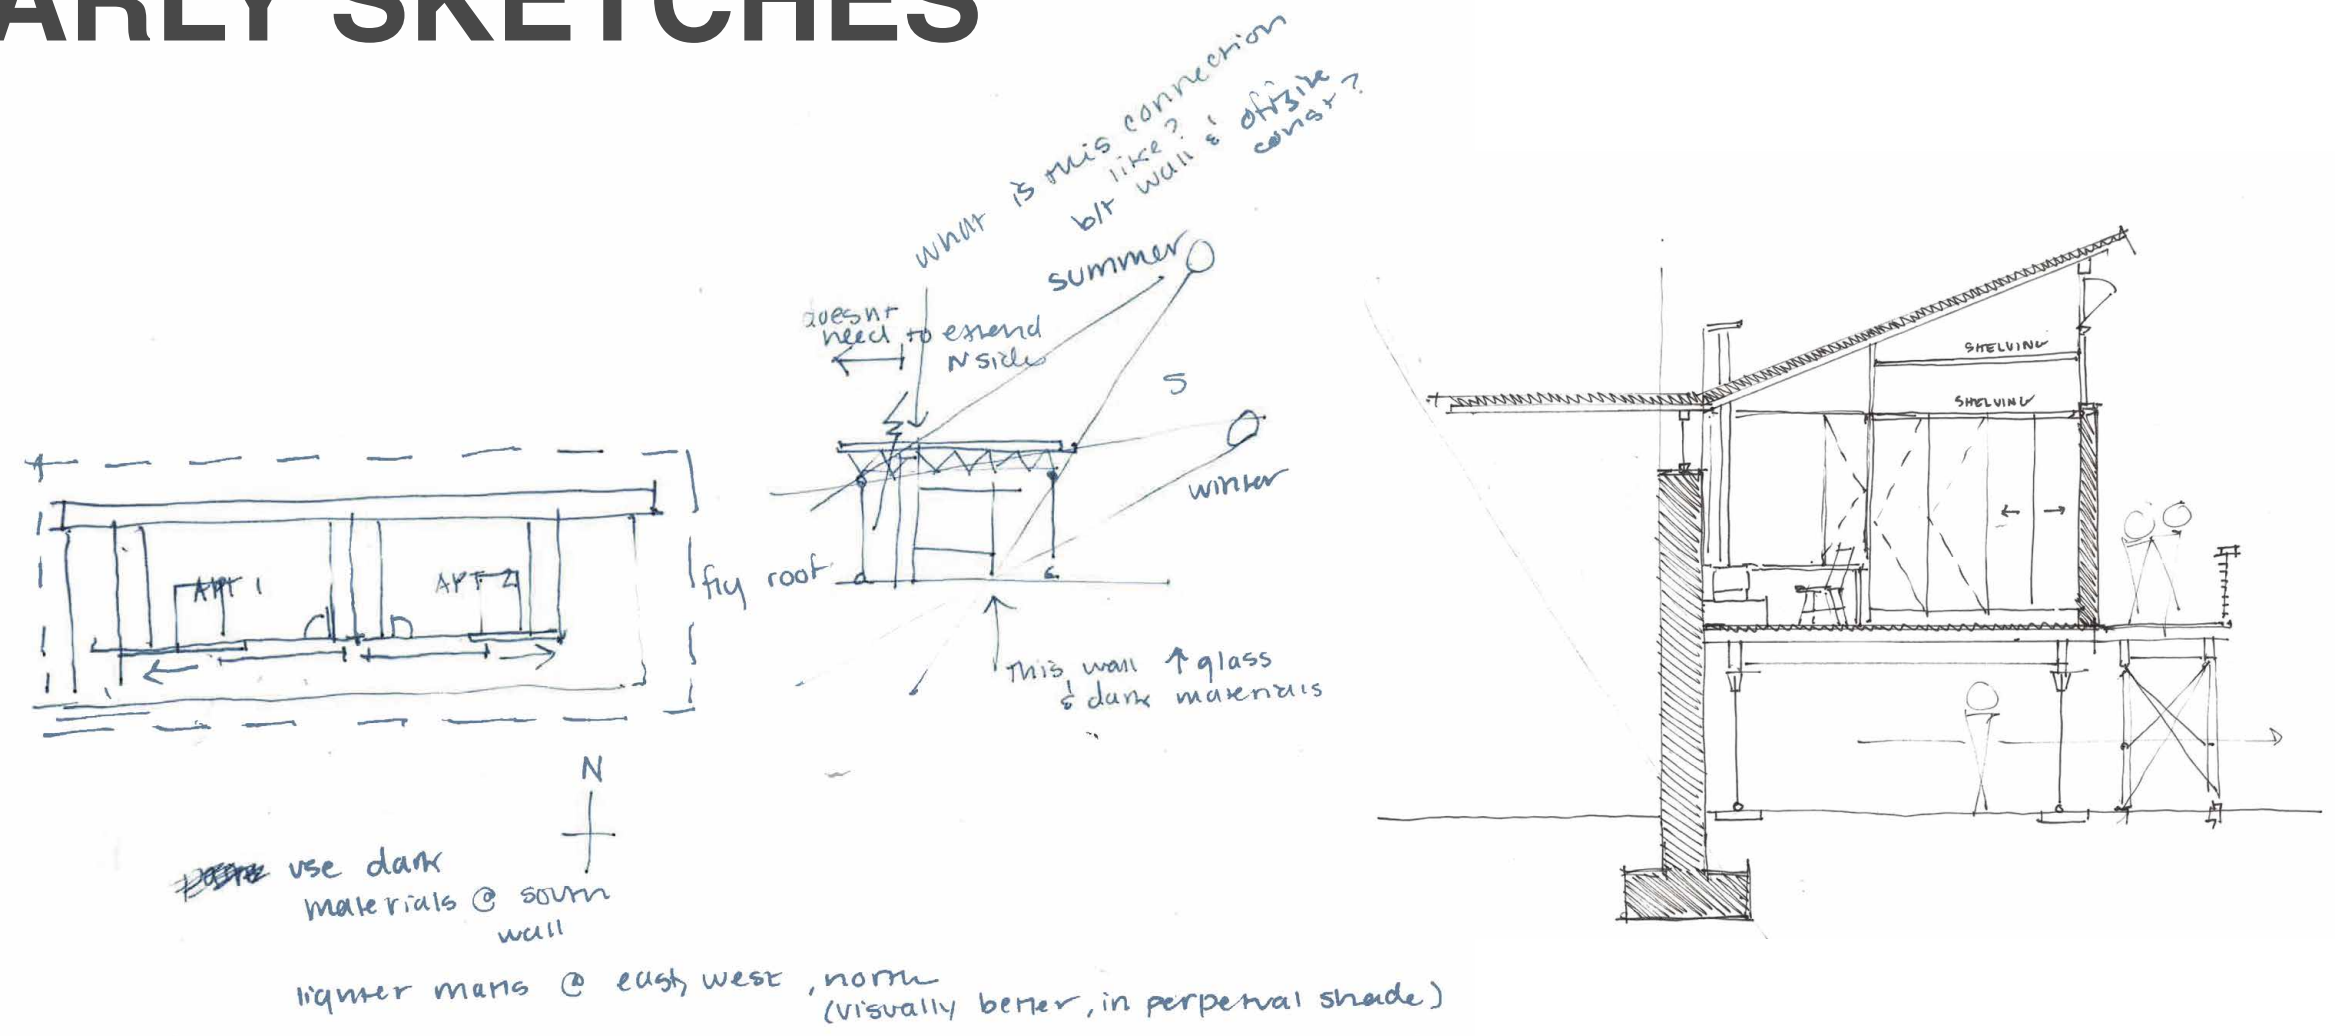 ARLY SKETCHES
what is this connection
like?
b/t wall & offsite
const?
summer
doesnt
need to extend
N side
S
winter
SHELVING
SHELVING
APT 1
APT 2
fly roof
This wall ↑ glass
& dark materials
N
use dark
materials @ south
wall
lighter matls @ east, west, north
(visually better, in perpetual shade)